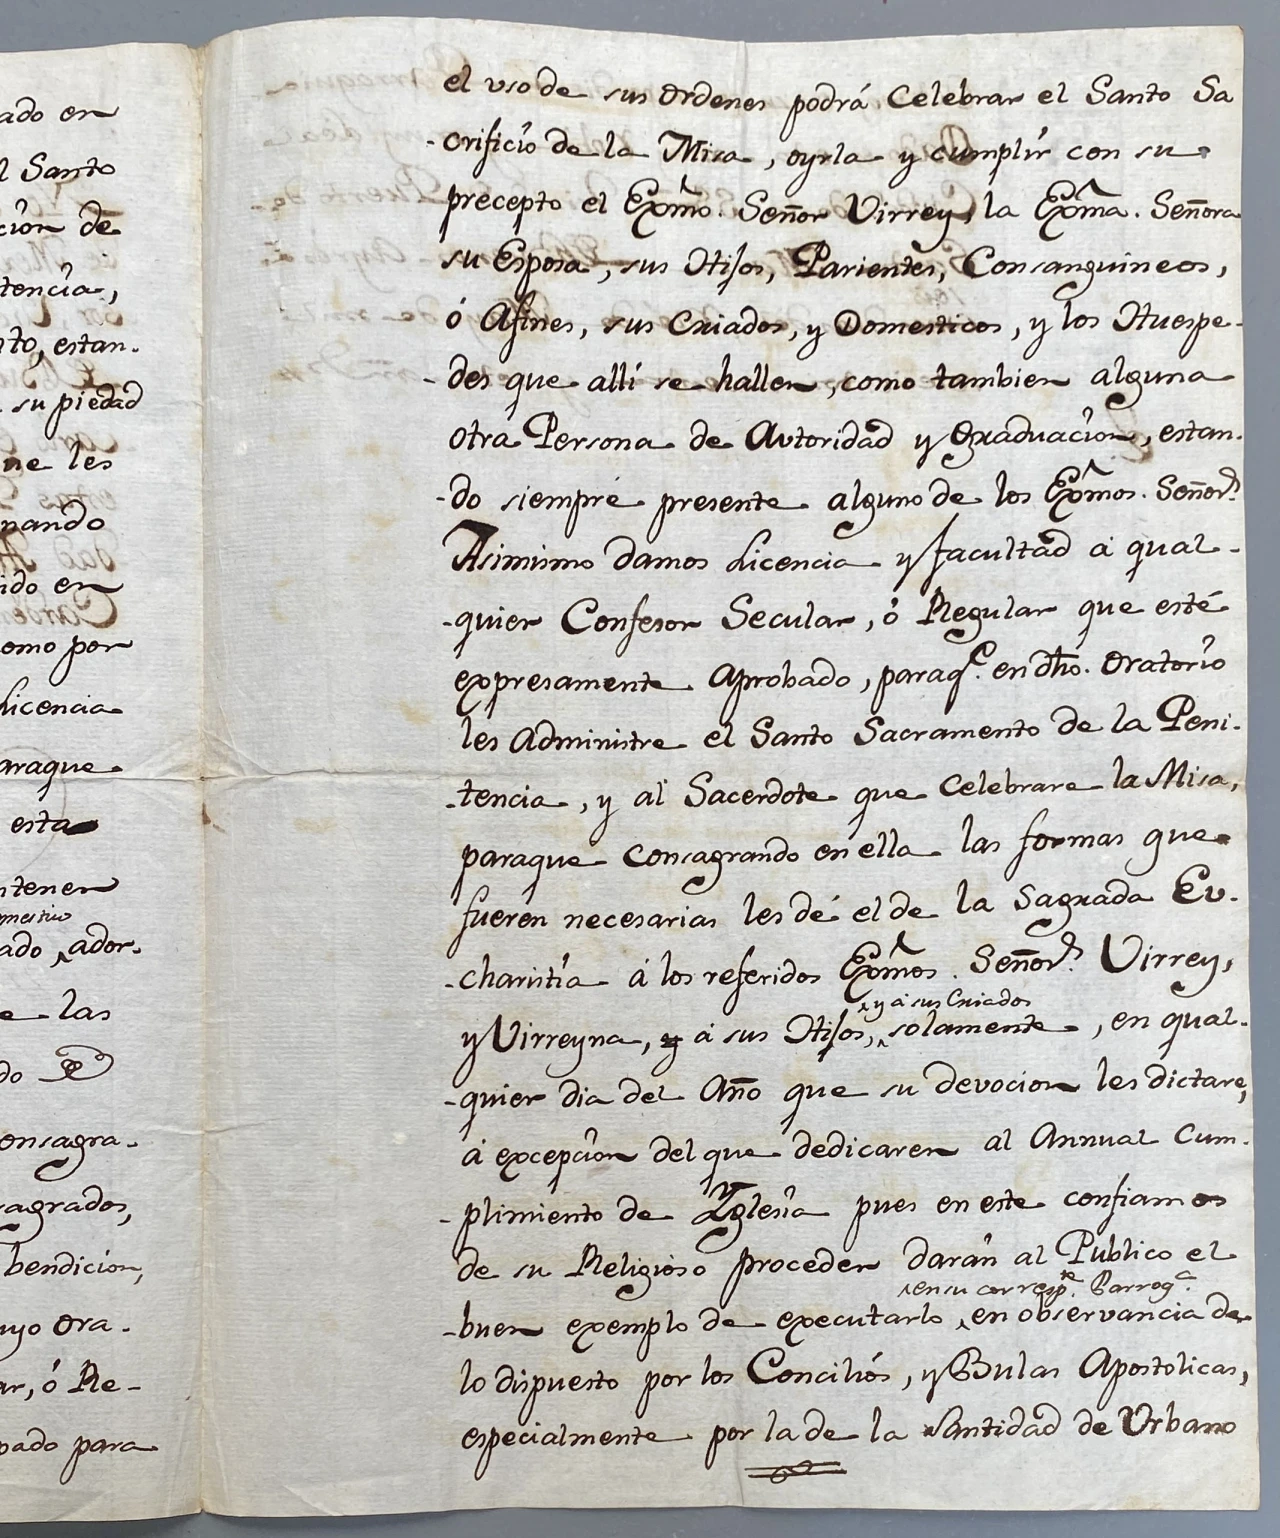 ado en
l Santo
cion de
tencia,
nto, estan-
su piedad
ne les
nando
ido en
omo por
licencia
araque
esta
ntener
mestico
ado ^ ador-
e las
do
onsagra-
sagrados,
bendicion,
uyo Ora-
ar, ó Re-
pado para
el uso de sus Ordenes podrá Celebrar el Santo Sa
-crificio de la Misa, oyrla y cumplir con su
precepto el Exmo. Señor Virrey, la Exma. Señora
su Esposa, sus Hijos, Parientes, Consanguineos,
ó Afines, sus Criados, y Domesticos, y los Huespe-
-des que allí se hallen, como tambien alguna
otra Persona de Autoridad y Graduacion, estan-
-do siempre presente alguno de los Exmos. Señors.
Asimismo damos Licencia y facultad á qual-
-quier Confesor Secular, ó Regular que esté
expresamente Aprobado, paraqe. en dho. Oratorio
les Administre el Santo Sacramento de la Peni-
-tencia, y al Sacerdote que Celebrare la Misa,
paraque Consagrando en ella las formas que
fueren necesarias les dé el de la Sagrada Eu-
-charistía á los referidos Exmos. Señors. Virrey,
^ y á sus Criados
y Virreyna, y á sus Hijos, ^ solamente, en qual-
-quier dia del Año que su devocion les dictare,
á excepcion del que dedicaren al Annual Cum-
-plimiento de Yglesia pues en este confiamos
de su Religioso proceder darán al Publico el
^ en su correspte. Parroqa.
-buen exemplo de executarlo ^ en observancia de
lo dispuesto por los Concilios, y Bulas Apostolicas,
especialmente por la de la Santidad de Urbano